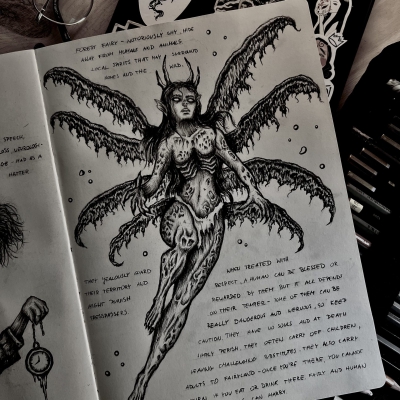 FOREST FAIRY - NOTORIOUSLY SHY, HIDE
AWAY FROM HUMANS AND ANIMALS
LOCAL SPIRITS THAT MAY SURROUND
HOMES AND THE
SPEECH,
AND AS A
MATTER
THEY JEALOUSLY GUARD
THEIR TERRITORY AND
MIGHT PUNISH
TRESPASSERS.
WHEN TREATED WITH
RESPECT, A HUMAN CAN BE BLESSED OR
REWARDED BY THEM BUT IT ALL DEPENDS
ON THEIR TEMPER - SOME OF THEM CAN BE
REALLY DANGEROUS AND VICIOUS, SO KEEP
CAUTION. THEY HAVE NO SOULS AND AT DEATH
SIMPLY PERISH. THEY OFTEN CARRY OFF CHILDREN,
LEAVING CHANGELING SUBSTITUTES - THEY ALSO CARRY
ADULTS TO FAIRYLAND - ONCE YOU'RE THERE, YOU CANNOT
IF YOU EAT OR DRINK THERE. FAIRY AND HUMAN
CAN MARRY.